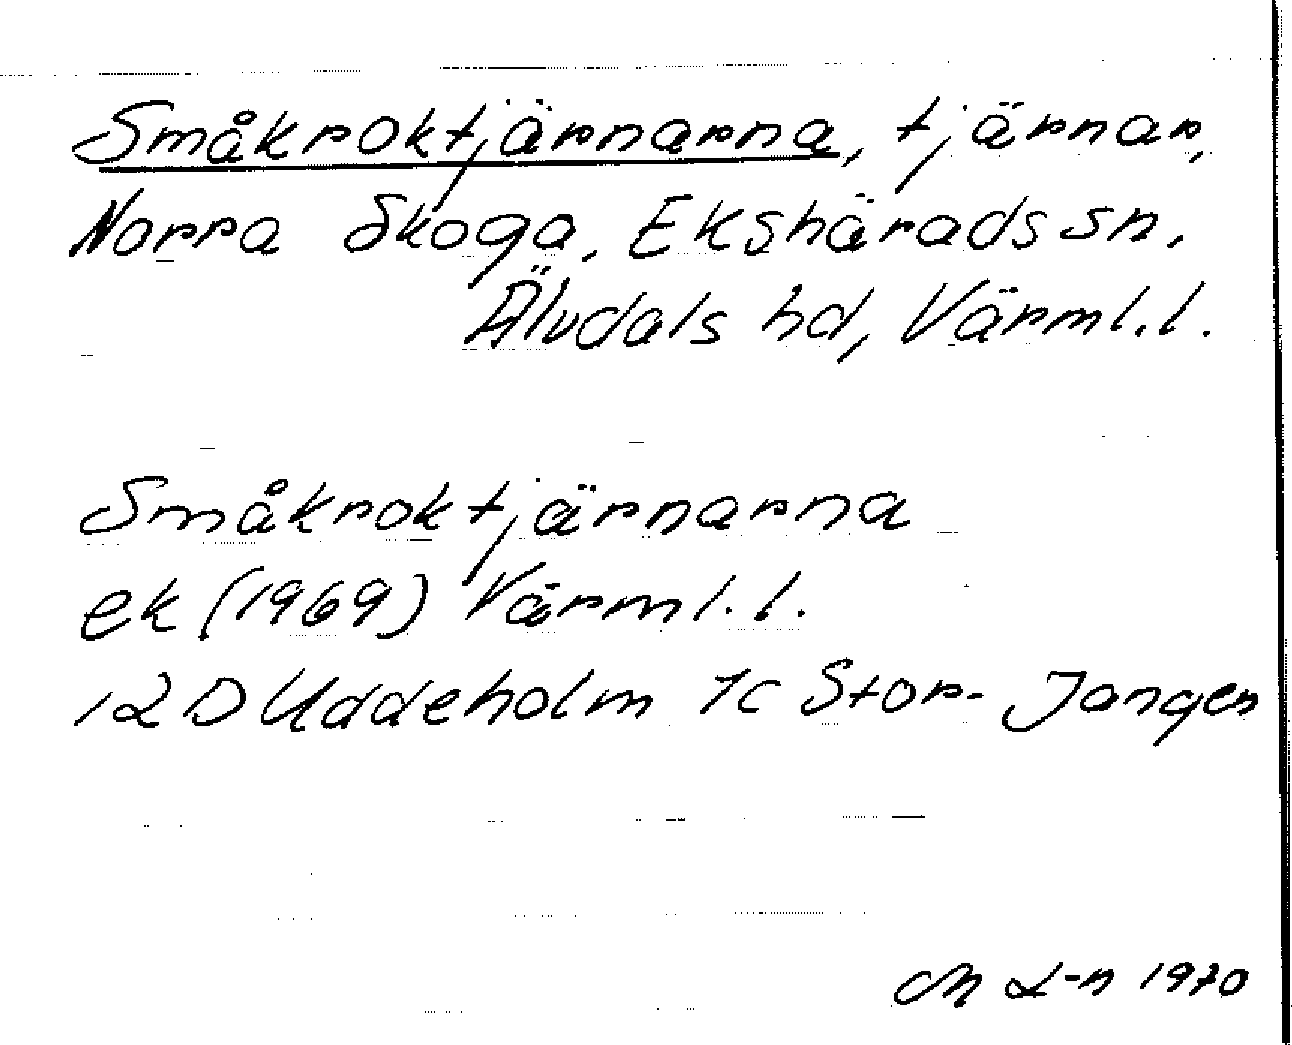 Småkroktjärnarna, tjärnar,
Norra Skoga, Ekshärads sn,
Älvdals hd, Värml.l.
Småkroktjärnarna
ek (1969) Värml.l.
12D Uddeholm 7c Stor-Jangen
M L-n 1970